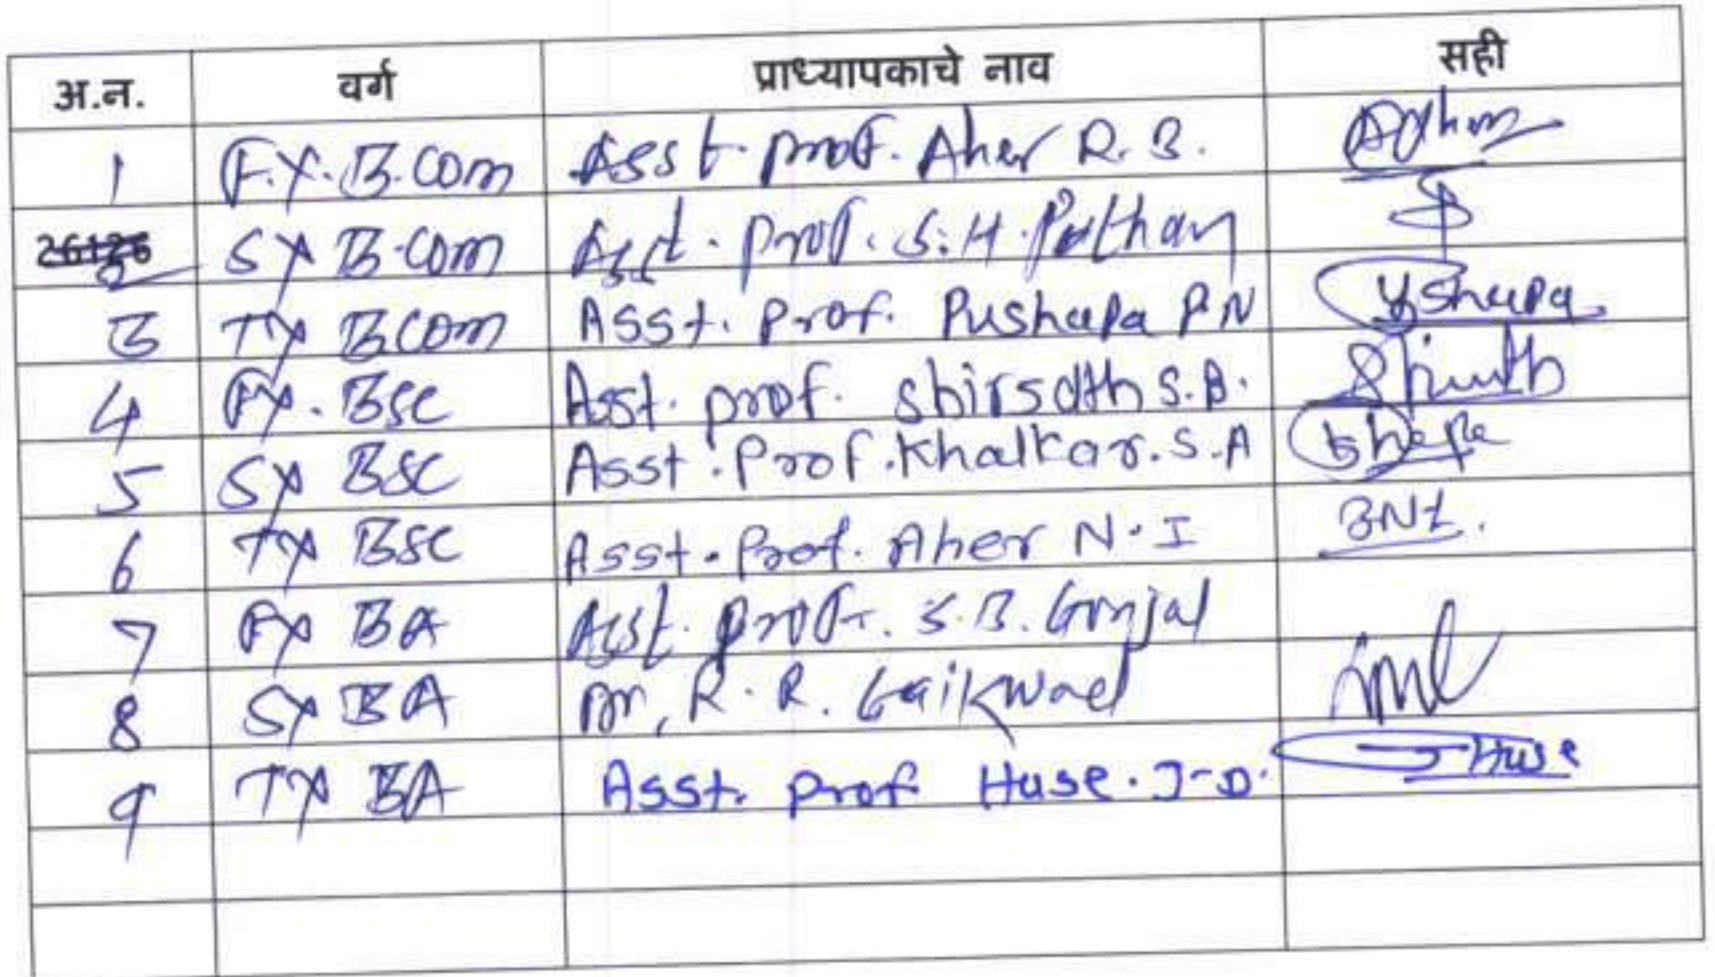 अ.न. वर्ग प्राध्यापकाचे नाव सही
1 F.Y.B.Com Asst. prof. Aher R. B.
2 SY B.Com Asst. prof. S.H. Pathan
3 TY B.Com Asst. Prof. Pushapa P N
4 FY. BSC Asst. prof. shirsath S.B.
5 SY BSC Asst. Prof. Khalkar. S.A
6 TY BSC Asst. Prof. Aher N. I
7 FY BA Asst. prof. S.B. Gunjal
8 SY BA Dr. R. R. Gaikwad
9 TY BA Asst. prof Huse. J-D. Huse